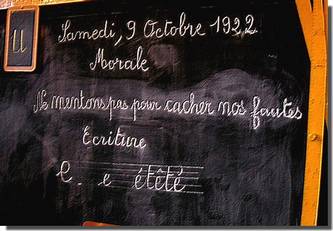 U
Samedi, 9 Octobre 1922
Morale
Ne mentons pas pour cacher nos fautes
Ecriture
C. e étêté